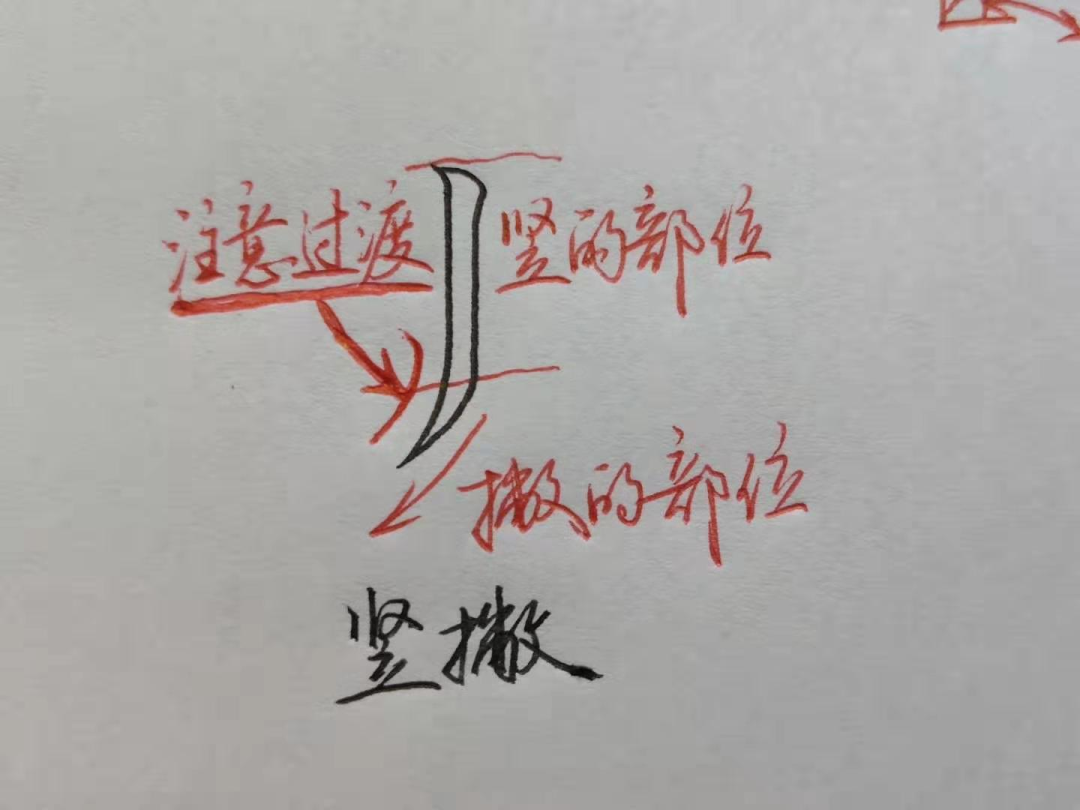 注意过渡
竖的部位
撇的部位
竖撇